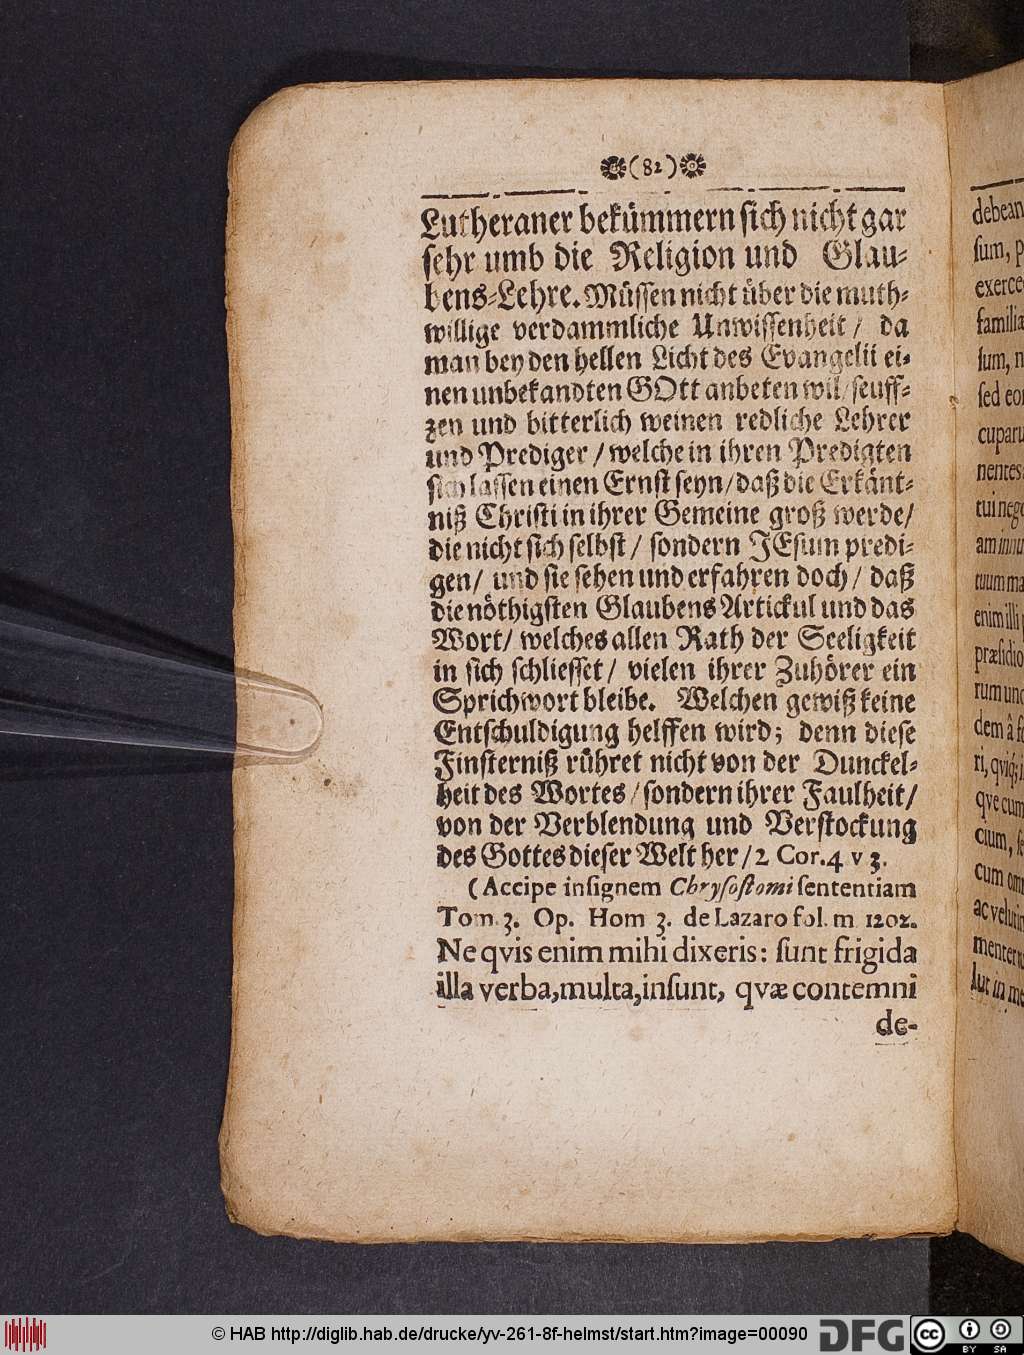 (82)
Lutheraner bekümmern sich nicht gar
sehr umb die Religion und Glau-
bens-Lehre. Müssen nicht über die muth-
willige verdammliche Unwissenheit / da
man bey den hellen Licht des Evangelii ei-
nen unbekandten GOtt anbeten wil / seuff-
zen und bitterlich weinen redliche Lehrer
und Prediger / welche in ihren Predigten
sich lassen einen Ernst seyn / daß die Erkänt-
niß Christi in ihrer Gemeine groß werde /
die nicht sich selbst / sondern JEsum predi-
gen / und sie sehen und erfahren doch / daß
die nöthigsten Glaubens Artickul und das
Wort / welches allen Rath der Seeligkeit
in sich schliesset / vielen ihrer Zuhörer ein
Sprichwort bleibe. Welchen gewiß keine
Entschuldigung helffen wird; denn diese
Finsterniß rühret nicht von der Dunckel-
heit des Wortes / sondern ihrer Faulheit /
von der Verblendung und Verstockung
des Gottes dieser Welt her / 2 Cor. 4 v 3.
(Accipe insignem Chrysostomi sententiam
Tom 3. Op. Hom 3. de Lazaro fol. m 1202.
Ne qvis enim mihi dixeris: sunt frigida
illa verba, multa, insunt, qvæ contemni
de-
debean
sum, p
exerce
familia
sum, n
sed eo
cuparu
nentes
tui nego
am innu
tuum ma
enim illi
præsidio
rum und
dem â fe
ri, qviq;
qve cum
cium, se
cum om
ac veluti
menter
lut in me
© HAB http://diglib.hab.de/drucke/yv-261-8f-helmst/start.htm?image=00090
DFG
cc
BY SA